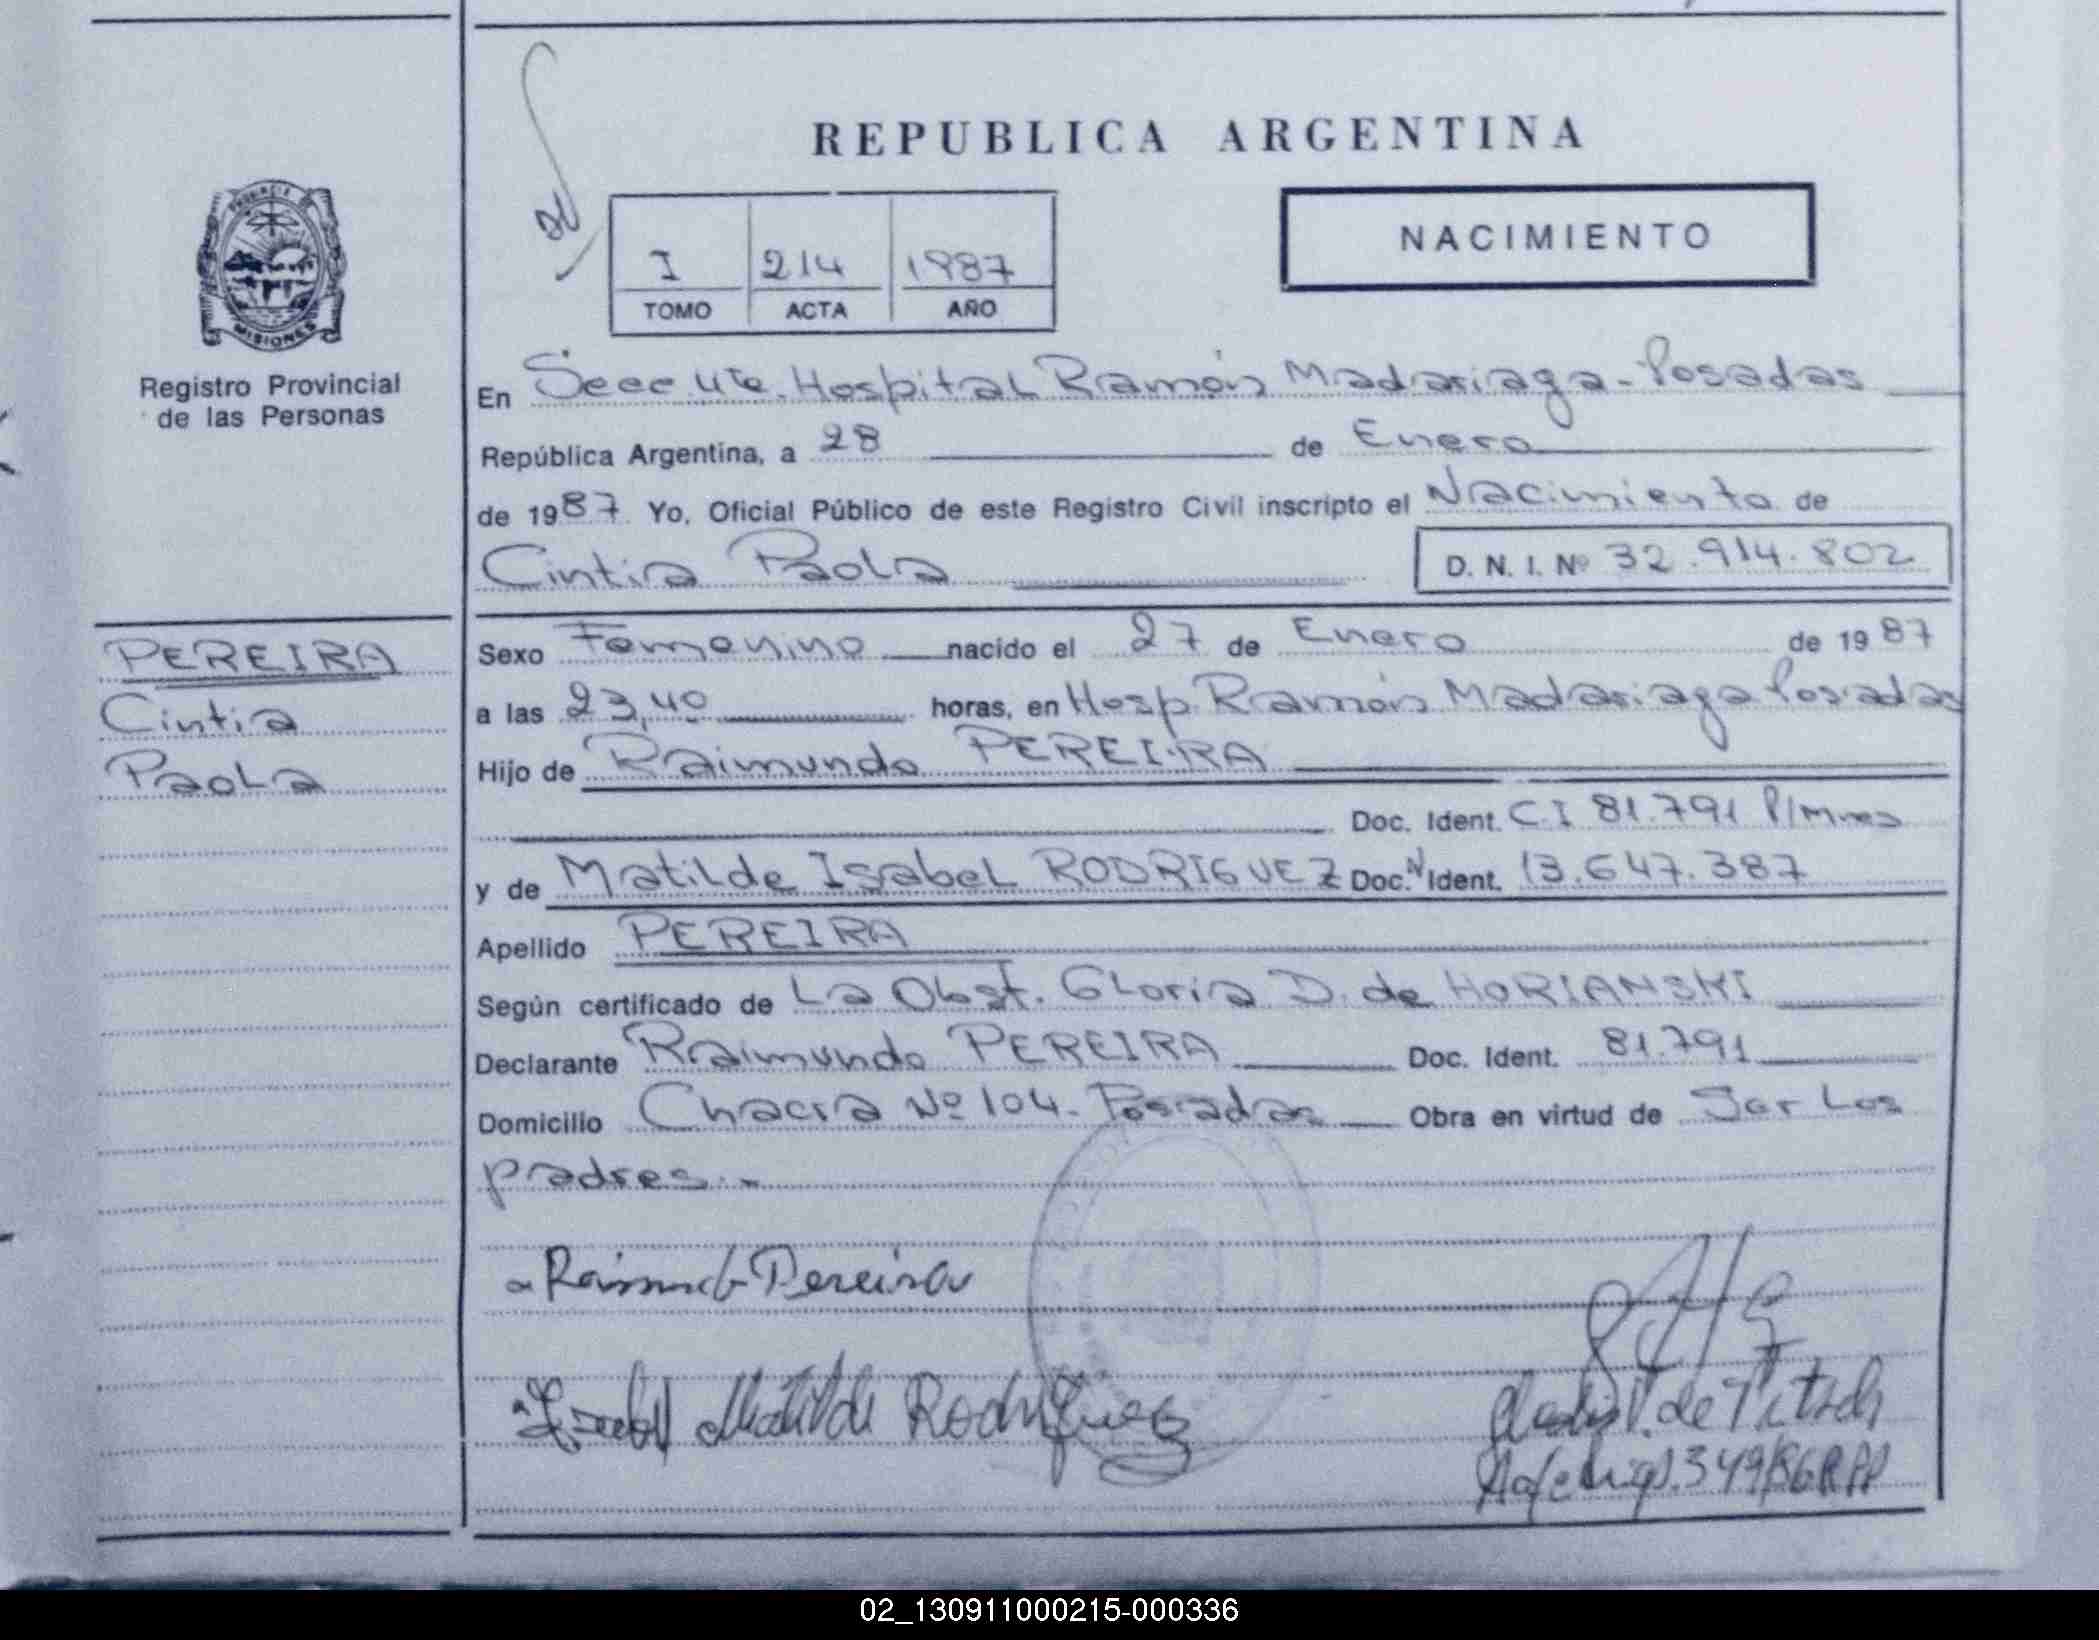 REPUBLICA ARGENTINA
NACIMIENTO
I 214 1987
TOMO ACTA AÑO
PROVINCIA
MISIONES
Registro Provincial
de las Personas
En Secc. Hospital Ramón Madariaga - Posadas
República Argentina, a 28 de Enero
de 1987 Yo, Oficial Público de este Registro Civil inscripto el Nacimiento de
Cintia Paola D. N. I. Nº 32.914.802
PEREIRA
Cintia
Paola
Sexo Femenino nacido el 27 de Enero de 1987
a las 23,40 horas, en Hosp. Ramón Madariaga Posadas
Hijo de Raimundo PEREIRA
Doc. Ident. C.I 81.791 P/Mnes
y de Matilde Isabel RODRIGUEZ Doc. N Ident. 13.647.387
Apellido PEREIRA
Según certificado de La Obst. Gloria D. de HORIANSKI
Declarante Raimundo PEREIRA Doc. Ident. 81.791
Domicilio Chacra Nº 104 - Posadas Obra en virtud de Ser Los
padres.-
Raimundo Pereira
Isabel Matilde Rodriguez
de
349/86
02_130911000215-000336